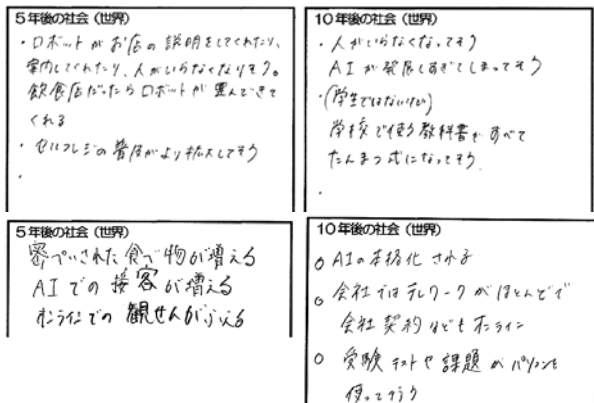 5年後の社会（世界）
・ロボットがお店の説明をしてくれたり、
案内してくれたり、人がいらなくなりそう。
飲食店だったらロボットが運んできて
くれる
・セルフレジの普及がより拡大してそう
・
10年後の社会（世界）
・人がいらなくなってそう
AIが発展しすぎてしまってそう
・(学生ではないけど)
学校で使う教科書がすべて
たんまつ式になってそう
・
5年後の社会（世界）
密ぺいされた食べ物が増える
AIでの接客が増える
オンラインでの観せんがふえる
10年後の社会（世界）
○ AIの本格化される
○ 会社ではテレワークがほとんどで
会社契約などもオンライン
○ 受験テストや課題がパソコンを
使って行う